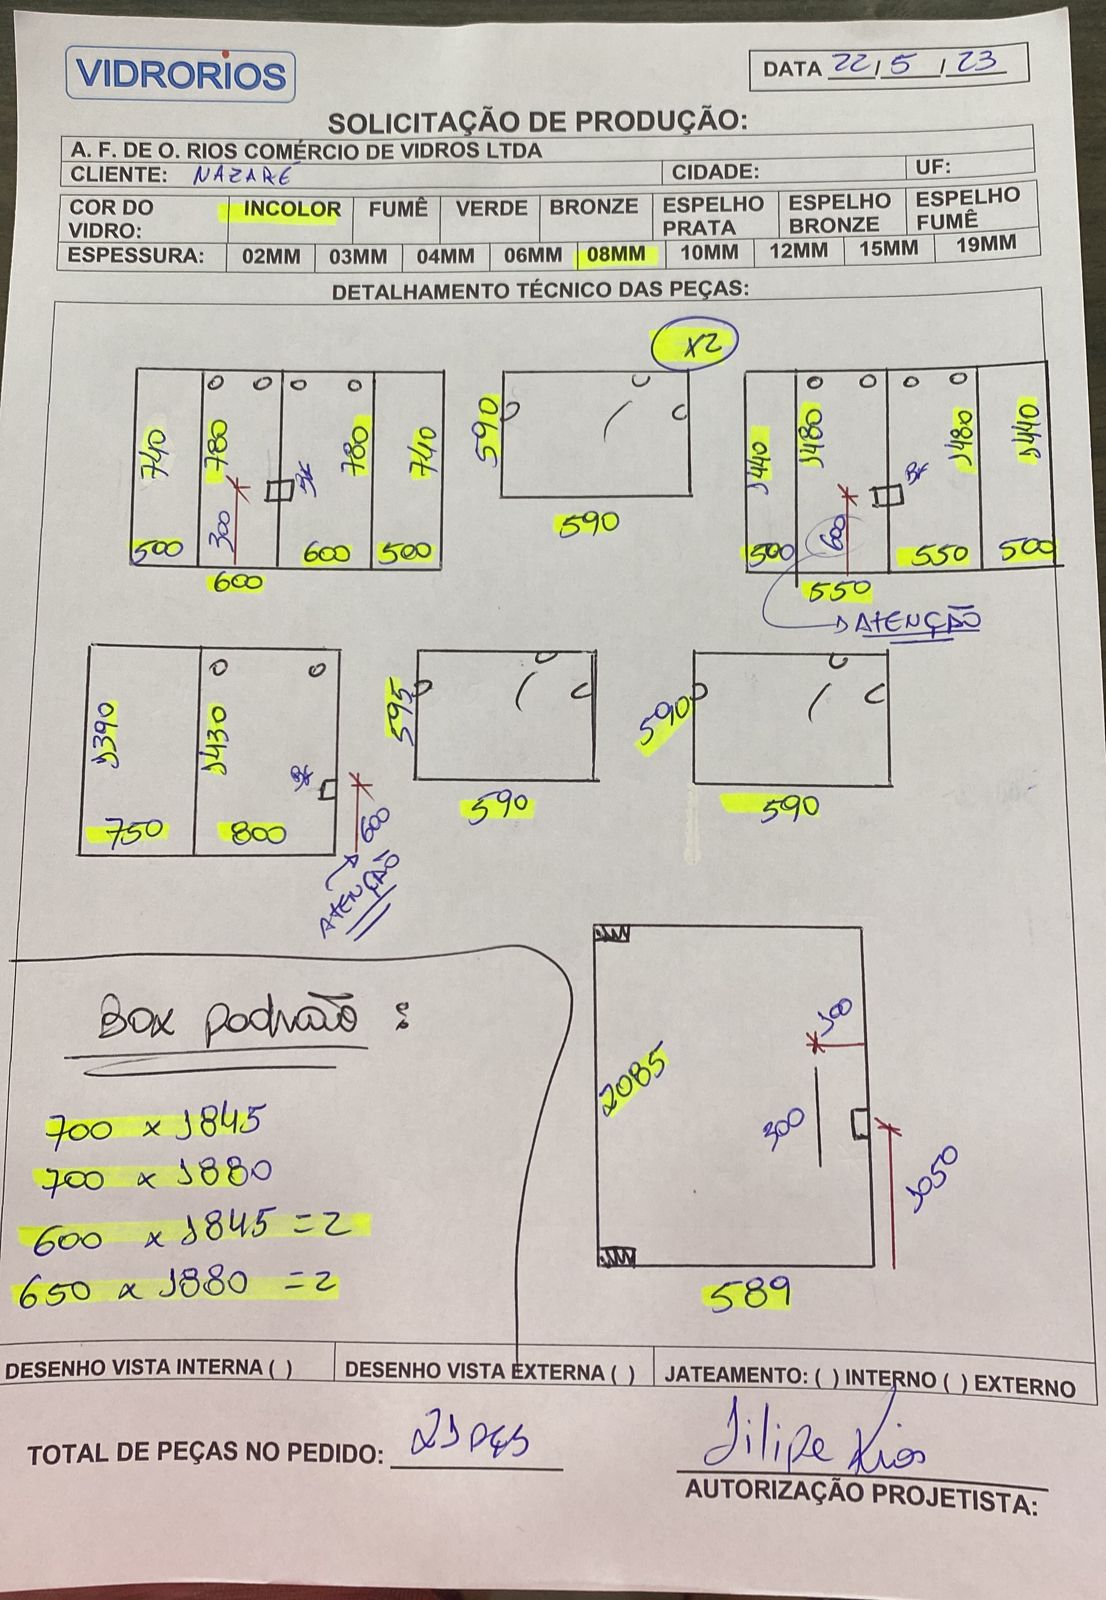 VIDRORIOS
DATA 22/5/23
SOLICITAÇÃO DE PRODUÇÃO:
A. F. DE O. RIOS COMÉRCIO DE VIDROS LTDA
CLIENTE: NAZARÉ CIDADE: UF:
COR DO VIDRO: INCOLOR FUMÊ VERDE BRONZE ESPELHO PRATA ESPELHO BRONZE ESPELHO FUMÊ
ESPESSURA: 02MM 03MM 04MM 06MM 08MM 10MM 12MM 15MM 19MM
DETALHAMENTO TÉCNICO DAS PEÇAS:
740 780 300 BF 780 740
500 600 600 500
X2
590
590
1440 1480 600 BF 1480 1440
500 550 550 500
ATENÇÃO
1390 1430 BF
750 800 600
ATENÇÃO
595
590
590
590
Box padrão:
700 x 1845
700 x 1880
600 x 1845 = 2
650 x 1880 = 2
2085 100
300
1050
589
DESENHO VISTA INTERNA ( ) DESENHO VISTA EXTERNA ( ) JATEAMENTO: ( ) INTERNO ( ) EXTERNO
TOTAL DE PEÇAS NO PEDIDO: 21 pçs
Filipe Rios
AUTORIZAÇÃO PROJETISTA: